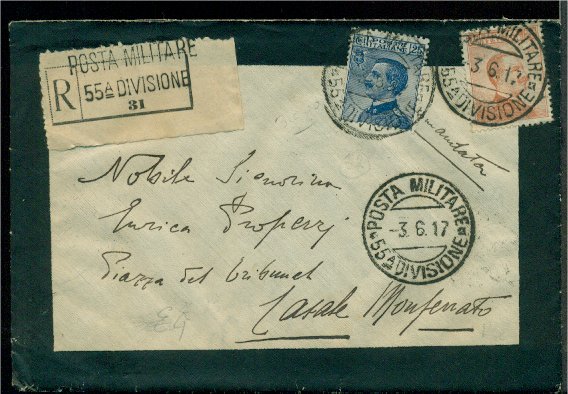 POSTA MILITARE
R
55ª DIVISIONE
31
55ª DIVISIONE
POSTA MILITARE
3 6.17
55ª DIVISIONE
Nobile Signorina
Enrica
Piazza del
Casale Monferrato
POSTA MILITARE
-3.6.17
55ª DIVISIONE